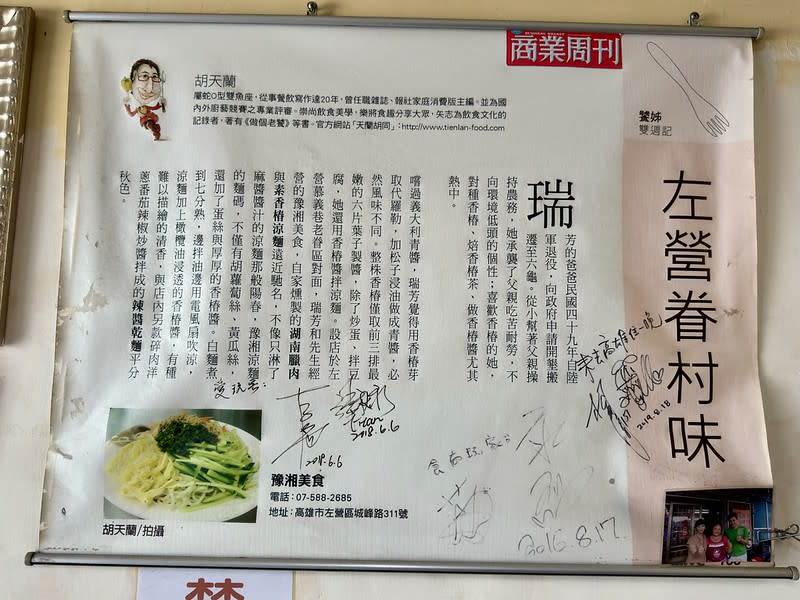 商業周刊
饕姊
雙週記
左營眷村味
胡天蘭
屬蛇O型雙魚座，從事餐飲寫作達20年，曾任職雜誌、報社家庭消費版主編。並為國
內外廚藝競賽之專業評審。崇尚飲食美學，樂將食趣分享大眾，矢志為飲食文化的
記錄者，著有《做個老饕》等書。官方網站「天蘭胡同」：http://www.tienlan-food.com
瑞
芳的爸爸民國四十九年自陸
軍退役，向政府申請開墾搬
遷至六龜。從小幫著父親操
持農務，她承襲了父親吃苦耐勞，不
向環境低頭的個性；喜歡香椿的她，
對種香椿、焙香椿茶、做香椿醬尤其
熱中。
嚐過義大利青醬，瑞芳覺得用香椿芽
取代羅勒，加松子浸油做成青醬，必
然風味不同。整株香椿僅取前三排最
嫩的六片葉子製醬，除了炒蛋、拌豆
腐，她還用香椿醬拌涼麵。設店於左
營慕義巷老眷區對面，瑞芳和先生經
營的豫湘美食，自家燻製的湖南臘肉
與素香椿涼麵遠近馳名，不像只淋了
麻醬醬汁的涼麵那般陽春，豫湘涼麵
的麵碼，不僅有胡蘿蔔絲，黃瓜絲，
還加了蛋絲與厚厚的香椿醬。白麵煮
到七分熟，邊拌油邊用電風扇吹涼，
涼麵加上橄欖油浸透的香椿醬，有種
難以描繪的清香，與店內另款碎肉洋
蔥番茄辣椒炒醬拌成的辣醬乾麵平分
秋色。
愛玩客：
2018.6.6
2018.6.6
食尚玩家
2016.8.17.
2019.8.18
豫湘美食
電話：07-588-2685
地址：高雄市左營區城峰路311號
胡天蘭/拍攝